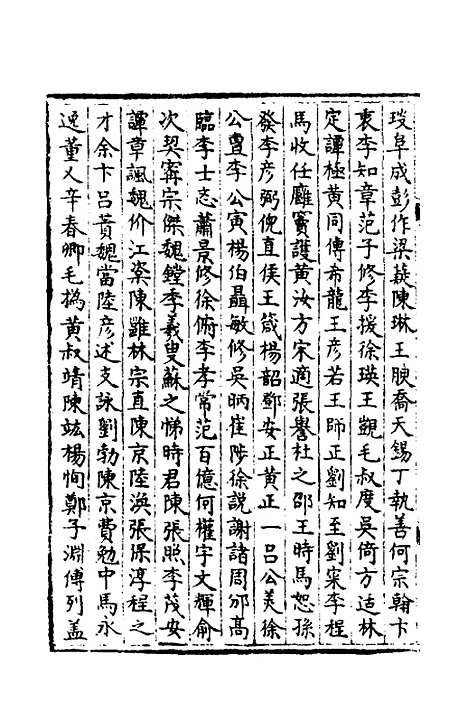 琰阜成彭作梁蕺陳琳王腴喬天錫丁執善何宗翰卞
衷李知章范子修李援徐瑛王覿毛叔度吳倚方适林
定譚極黃同傳希龍王彦若王師正劉知至劉寀李桯
馬收任廱竇護黃汝方宋適張譽杜之邵王時馬恕孫
發李彦弼倪直侯王箴楊韶鄭安正黃正一呂公美徐
公李公寅楊伯聶敏修吳昞崔陟徐說謝諸周邠高
臨李士忞蕭景修徐俯李孝常范百億何權宇文輝俞
次契甯宗傑魏鏜季羲叟蘇之悌時君陳張照李茂安
譚章諷魏价江棻陳雖林宗直陳京陸渙張保淳程之
才余卞呂蕡魏當陸彦述支詠劉勃陳京費勉中馬永
逸董乂辛春卿毛撝黃叔靖陳竑楊恂鄭子淵傅列盖